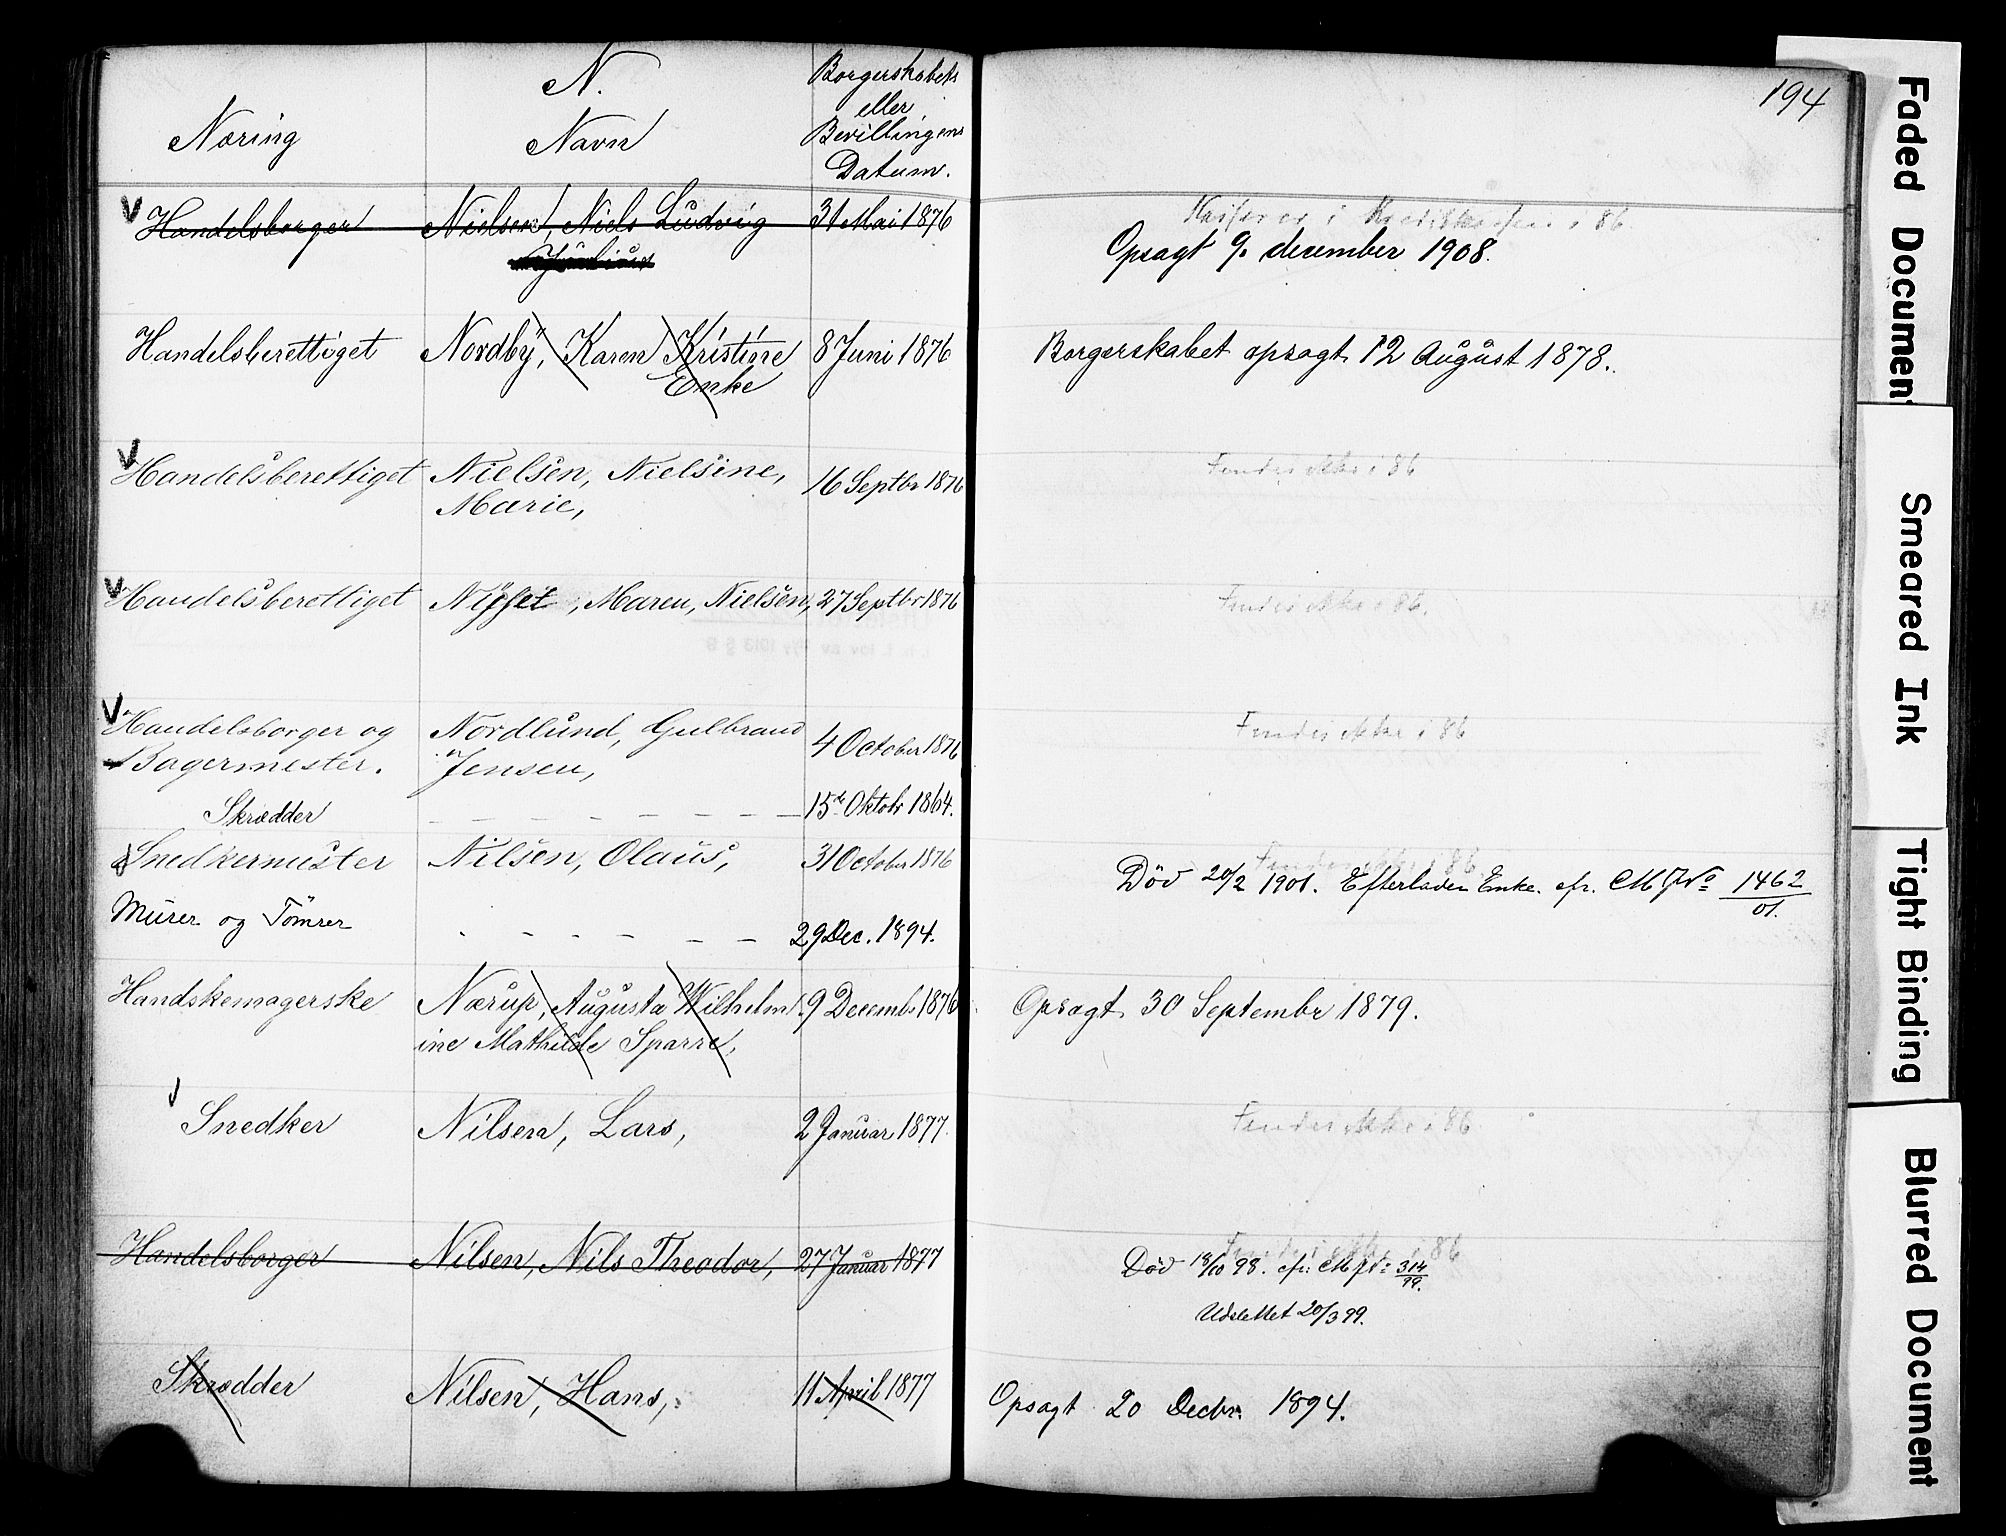 N.
194
Næring
Navn
Borgerskabets
eller
Bevillingens
Datum.
V Handelsborger Nielsen, Niels Ludvig 31 Mai 1876
i 86.
Opsagt 9. december 1908.
Handelsberettiget Nordby, Karen Kristine 8 Juni 1876 Borgerskabet opsagt 12 August 1878.
Enke
V Handelsberettiget Nielsen, Nielsine, 16 Septbr 1876 Findes ikke i 86
Marie,
V Handelsberettiget , Maren, Nielsen, 27 Septbr 1876 Findes ikke i 86.
V Handelsborger og Nordlund, Gulbrand 4 October 1876 Findes ikke i 86
Bagermester. Jensen,
Skrædder — — — — — — — 15de Oktobr 1864.
Snedkermester Nilsen, Olaus, 31 October 1876 Findes ikke i 86.
Død 20/2 1901. Efterladen Enke. cfr. CMJNo 1462/01.
Murer og Tömrer - - - - - - 29 Dec. 1894.
Handskemagerske Nærup, Augusta Wilhelm 9 Decembr 1876 Opsagt 30 September 1879.
ine Mathilde Sparre,
V Snedker Nilsen, Lars, 2 Januar 1877. Findes ikke i 86
Handelsborger Nilsen, Nils Theodor, 27 Januar 1877 Findes ikke i 86
Død 18/10 98. cfr. CMJNo 314/99.
Udslettet 20/3 99.
Skrædder Nilsen, Hans, 11 April 1877 Opsagt 20 Decbr. 1894.
Faded Document
Smeared Ink
Tight Binding
Blurred Document